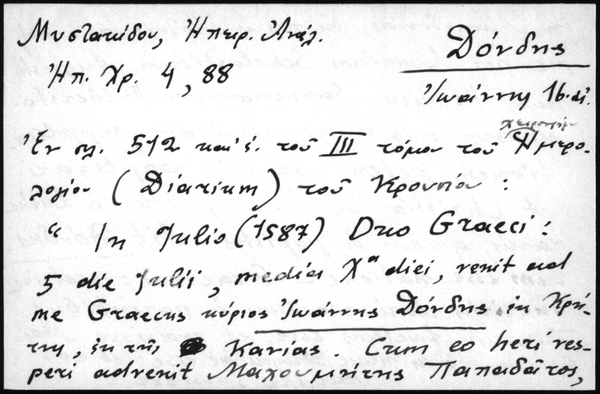 Μυστακίδου, Ἠπειρ. Ἀνάλ.
Δόνδης
Ἠπ. Χρ. 4, 88
Ἰωάννης 16 αἰ.
χειρογράφου
Ἐν σελ. 512 καὶ ἑ. τοῦ III τόμου τοῦ Ἡμερο-
λογίου (Diarium) τοῦ Κρουσίου:
" In Julio (1587) Duo Graeci:
5 die Julii, media Xª diei, venit ad
me Graecus κύριος Ἰωάννης Δόνδης ἐκ Κρή-
της, ἐκ τῆς Κανίας Cum eo heri ves-
peri advenit Μαχουμήτης Παπαδᾶτος,